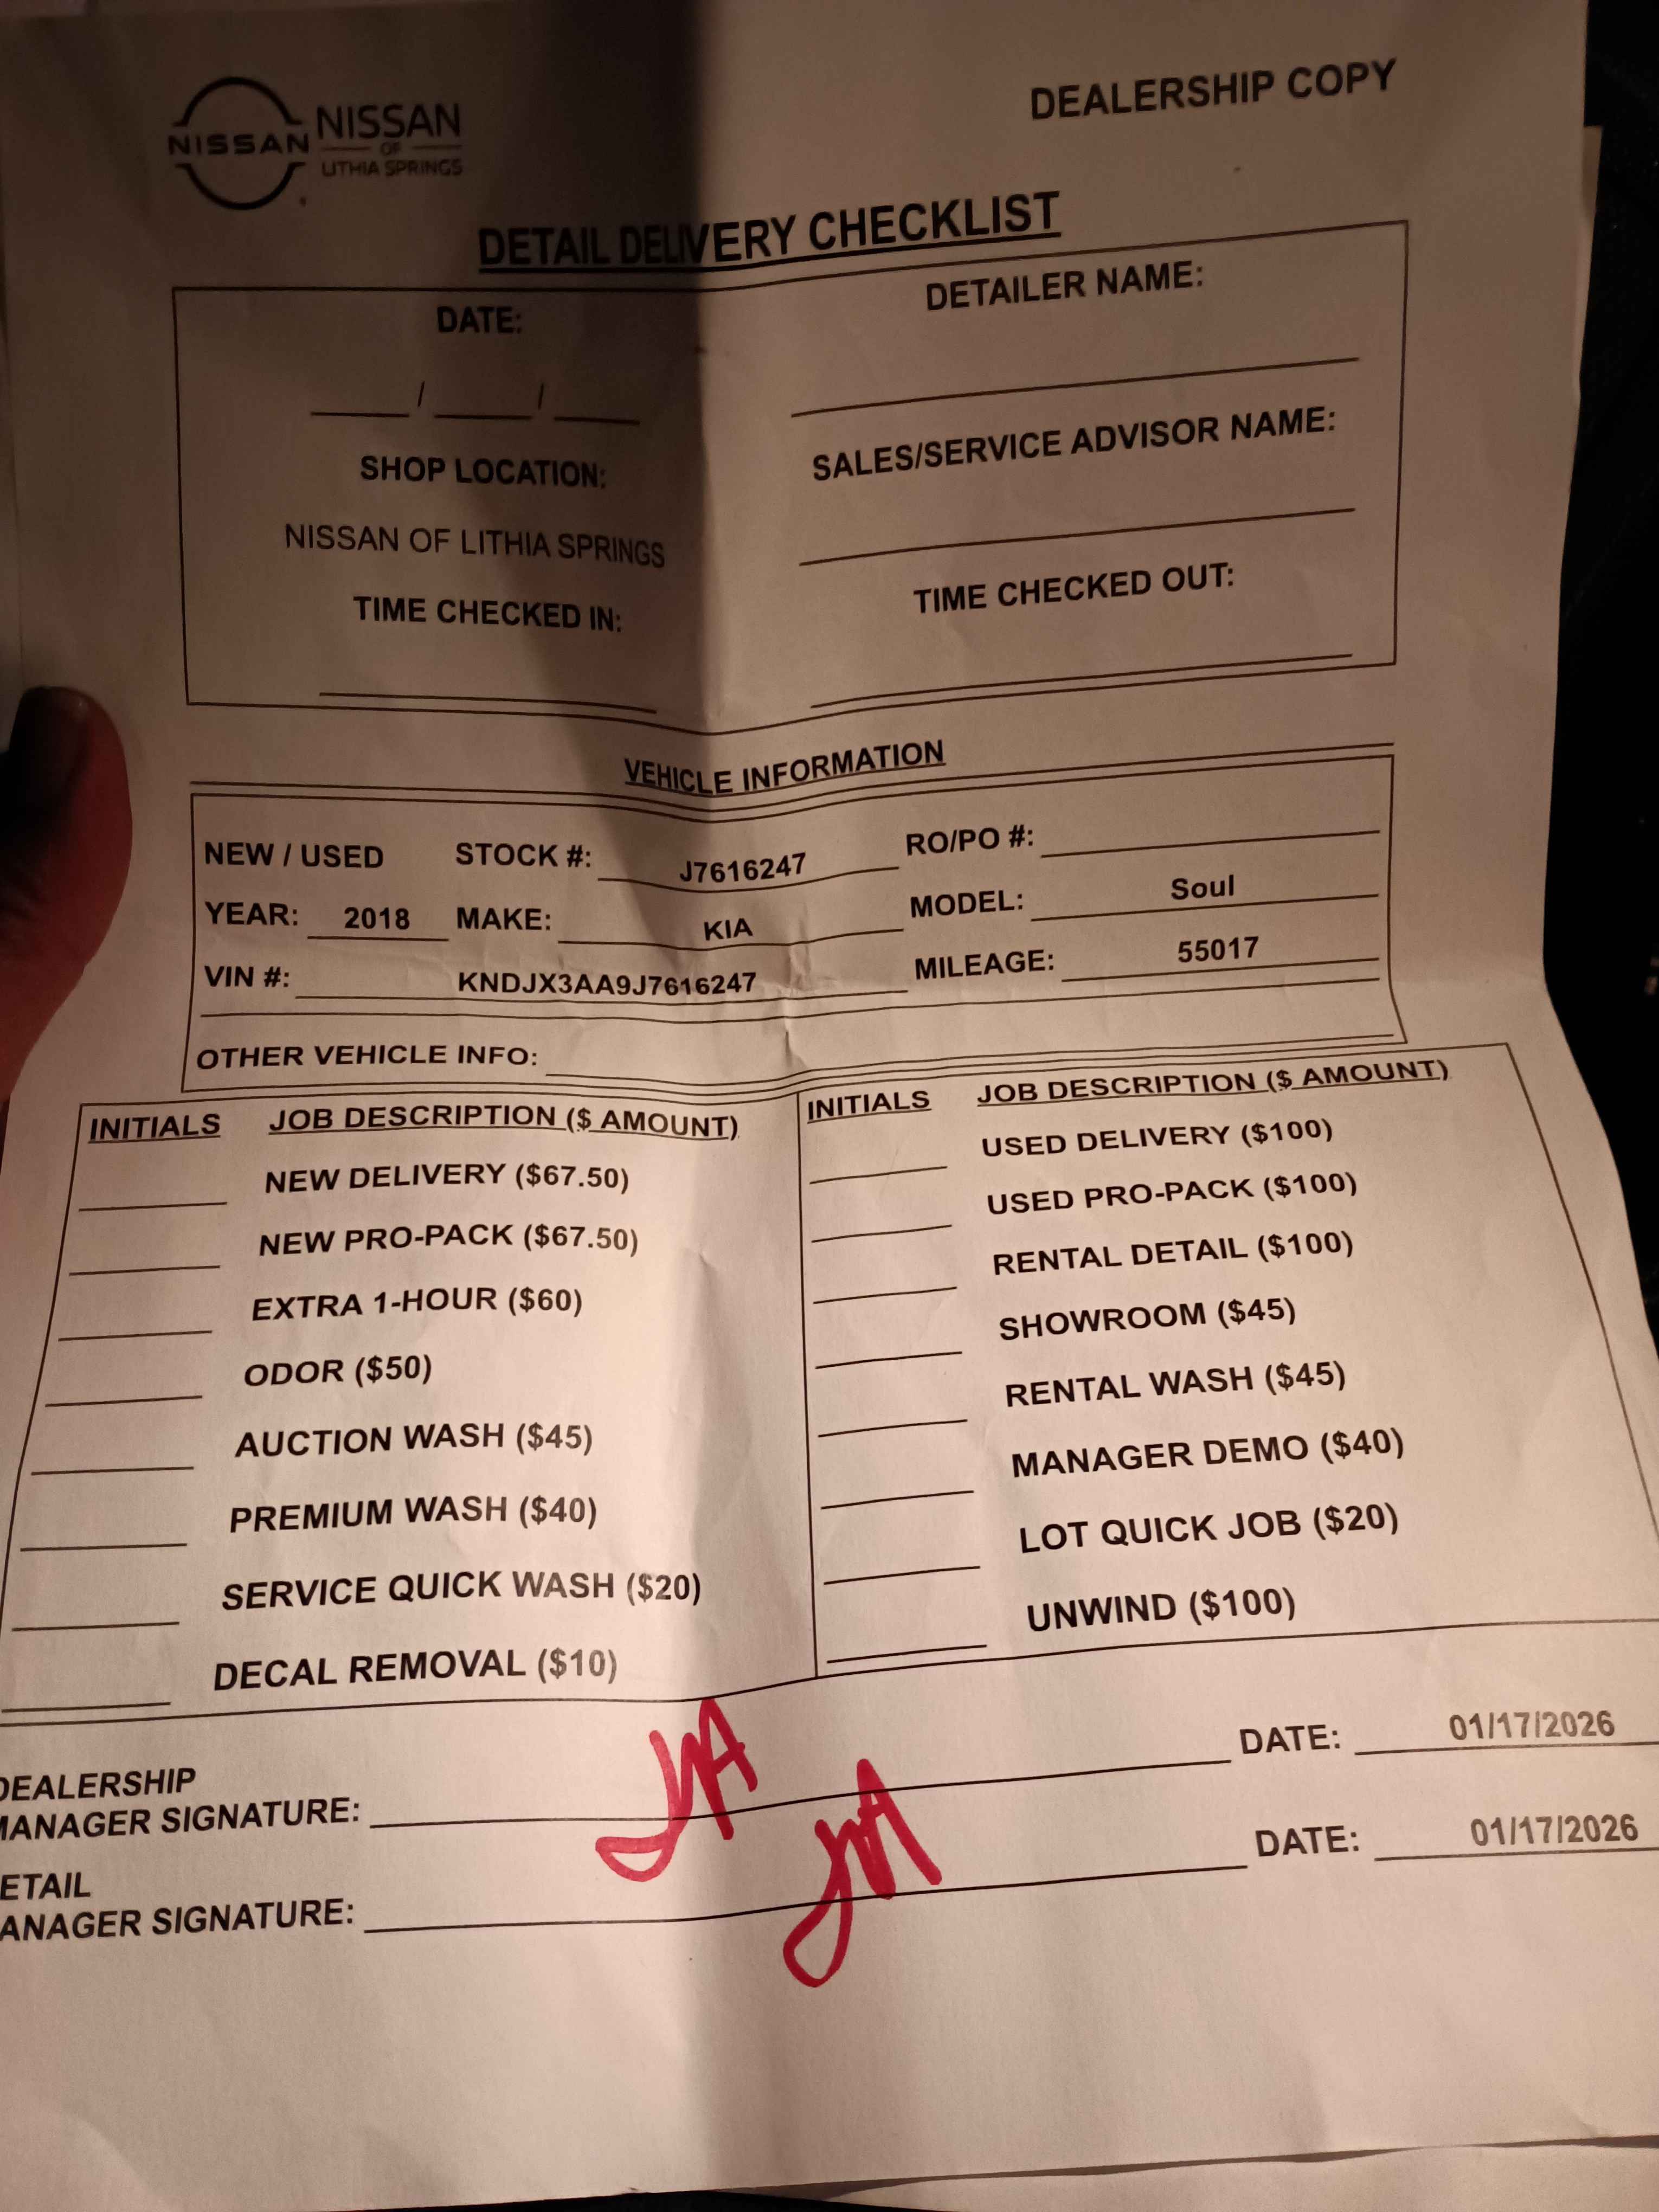 DEALERSHIP COPY
NISSAN
NISSAN
OF
LITHIA SPRINGS
DETAIL DELIVERY CHECKLIST
DATE:
DETAILER NAME:
/ /
SHOP LOCATION:
SALES/SERVICE ADVISOR NAME:
NISSAN OF LITHIA SPRINGS
TIME CHECKED IN:
TIME CHECKED OUT:
VEHICLE INFORMATION
NEW / USED STOCK #: J7616247 RO/PO #:
YEAR: 2018 MAKE: KIA MODEL: Soul
VIN #: KNDJX3AA9J7616247 MILEAGE: 55017
OTHER VEHICLE INFO:
INITIALS JOB DESCRIPTION ($ AMOUNT)
NEW DELIVERY ($67.50)
NEW PRO-PACK ($67.50)
EXTRA 1-HOUR ($60)
ODOR ($50)
AUCTION WASH ($45)
PREMIUM WASH ($40)
SERVICE QUICK WASH ($20)
DECAL REMOVAL ($10)
INITIALS JOB DESCRIPTION ($ AMOUNT)
USED DELIVERY ($100)
USED PRO-PACK ($100)
RENTAL DETAIL ($100)
SHOWROOM ($45)
RENTAL WASH ($45)
MANAGER DEMO ($40)
LOT QUICK JOB ($20)
UNWIND ($100)
DEALERSHIP
MANAGER SIGNATURE: DATE: 01/17/2026
ETAIL
ANAGER SIGNATURE: DATE: 01/17/2026